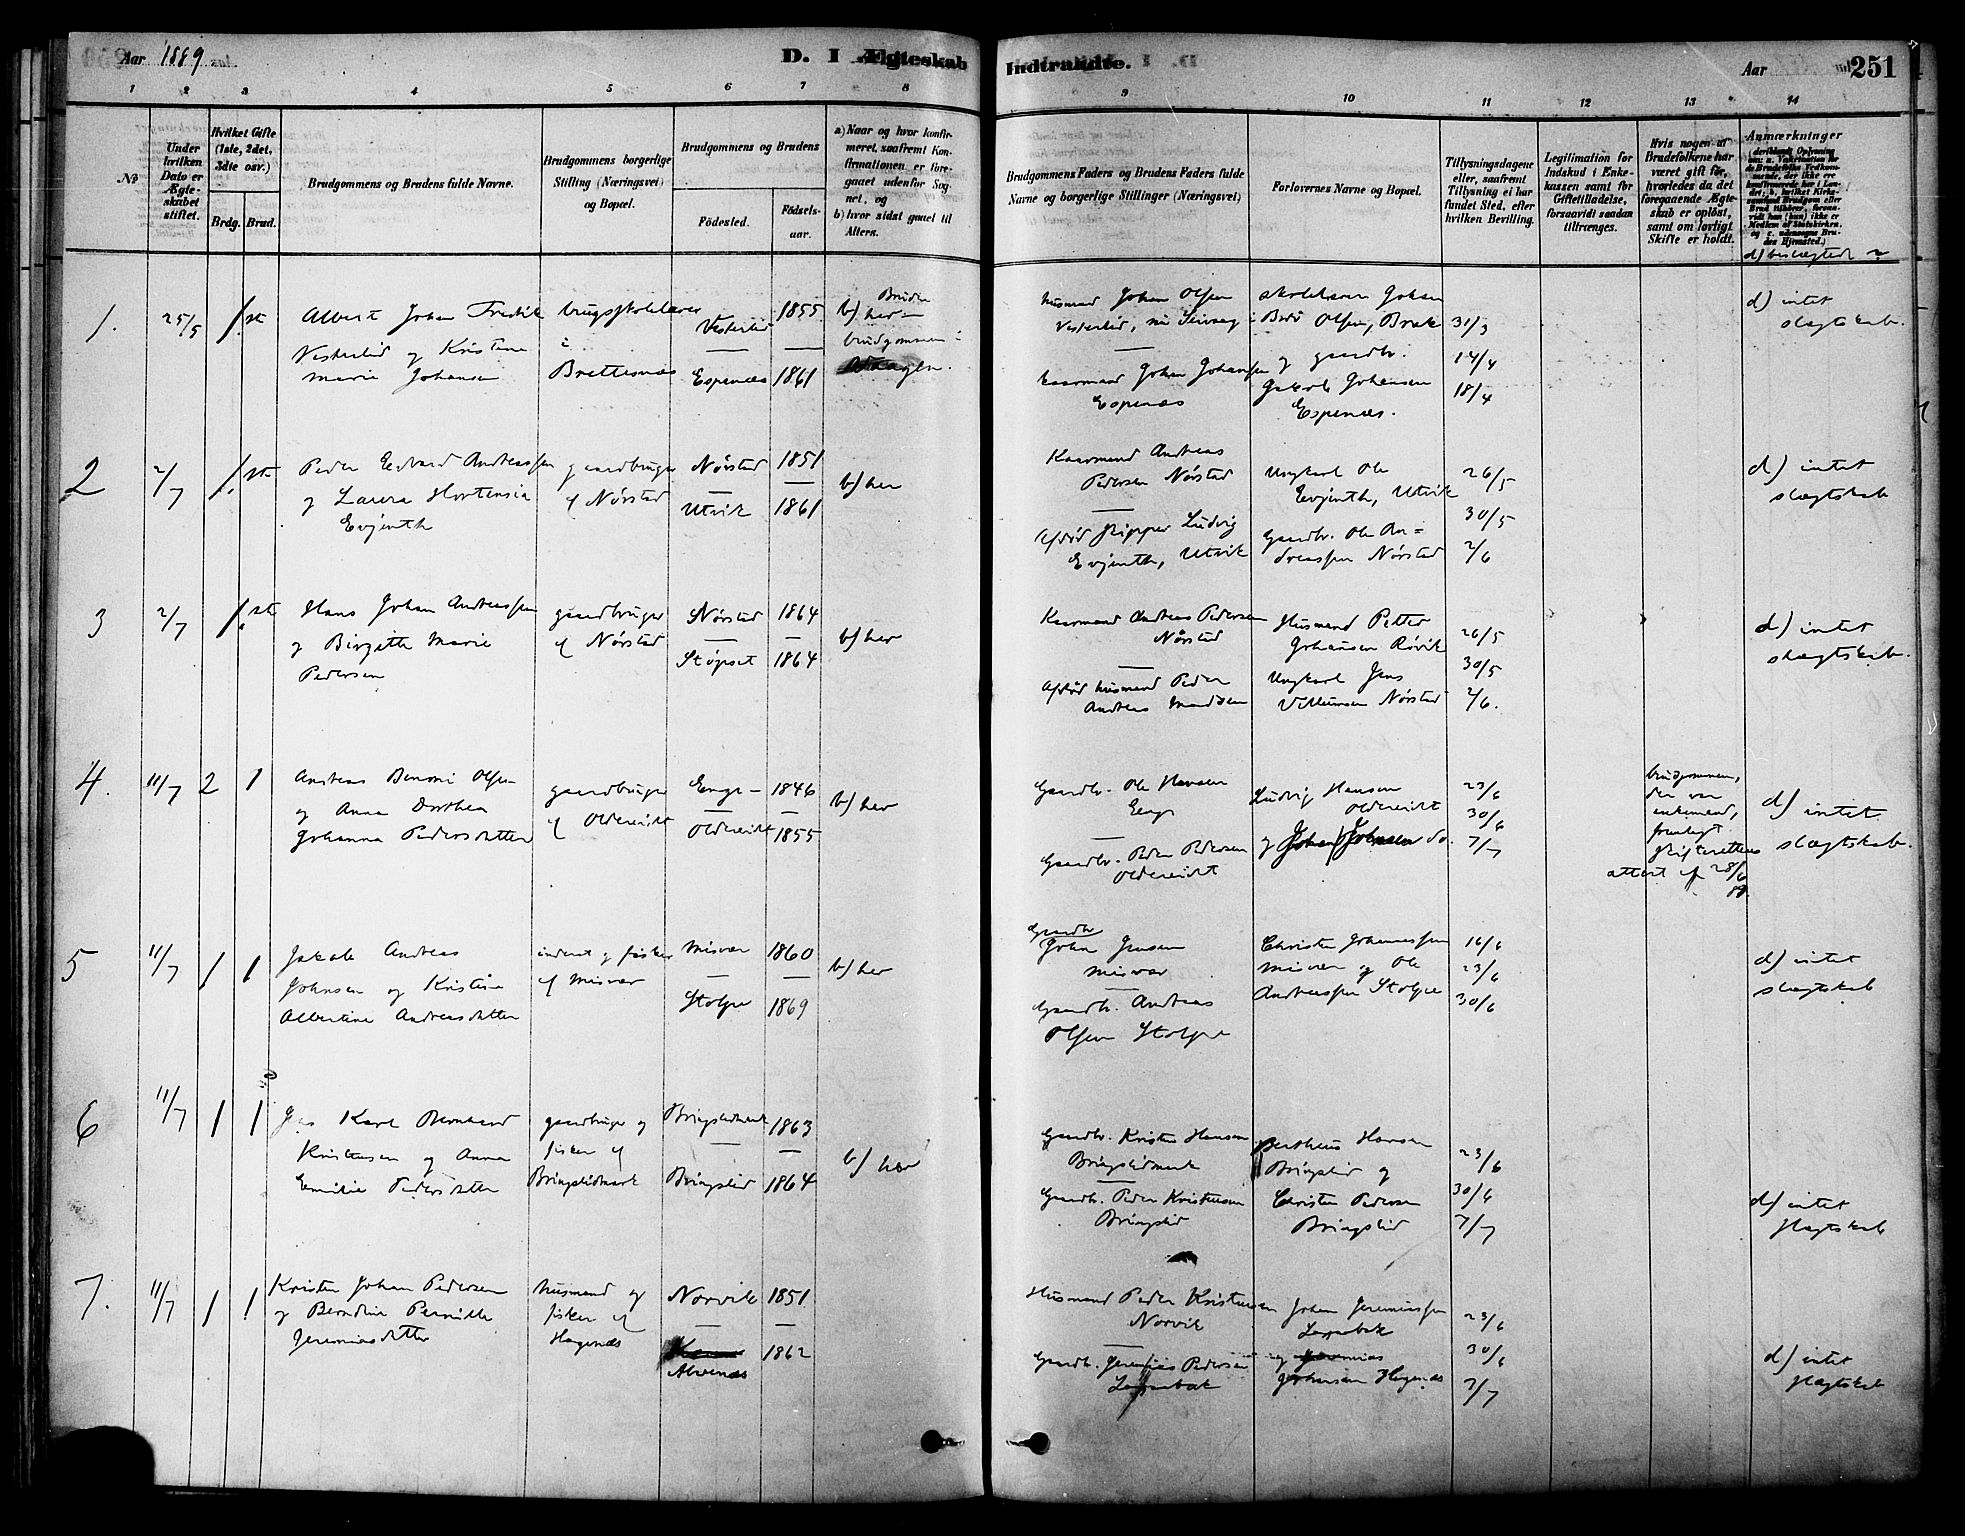 Aar 1889
D. I Ægteskab
Indtraadte.
Aar
251
1 2 3 4 5 6 7 8 9 10 11 12 13 14
No
Under
hvilken
Dato er
Ægte-
skabet
stiftet.
Hvilket Gifte
(1ste, 2det,
3die osv.)
Brdg. Brud.
Brudgommens og Brudens fulde Navne.
Brudgommens borgerlige
Stilling (Næringsvei)
og Bopæl.
Brudgommens og Brudens
Födested.
Födsels-
aar.
a) Naar og hvor konfir-
meret, saafremt Kon-
firmationen er fore-
gaaet udenfor Sog-
net, og
b) hvor sidst gaaet til
Alters.
Brudgommens Faders og Brudens Faders fulde
Navne og borgerlige Stillinger (Næringsvei)
Forlovernes Navne og Bopæl.
Tillysningsdagene
eller, saafremt
Tillysning ei har
fundet Sted, efter
hvilken Bevilling.
Legitimation for
Indskud i Enke-
kassen samt for
Giftetilladelse,
forsaavidt saadan
tiltrænges.
Hvis nogen af
Brudefolkene har
været gift før,
hvorledes da det
foregaaende Ægte-
skab er opløst,
samt om lovligt
Skifte er holdt.
Anmærkninger
d) beslægtede ?
1.
25/5
1 ste
Albert Johan Fredrik
Vesterlid og Kristine
Marie Johansen
brugsskolelærer
i
Brettesnæs
Vesterlid
—
Espenæs
1855
—
1861
Bruden
b) her –
brudgommen i
Husmand Johan Olsen
Vesterlid,
—
Kaarmand Johan Johansen
Espenæs
skolelærer Johan
Olsen,
og gaardbr.
Jakob Johansen
Espenæs.
31/3
14/4
18/4
d) intet
slægtskab.
2
2/7
1. ste
Peder Edvard Andreassen
og Laura Hortensia
Evjenth
gaardbruger
af Nørstad
Nørstad
—
Utvik
1851
—
1861
b) her
Kaarmand Andreas
Pedersen Nørstad
—
Afdød Skipper Ludvig
Evjenth, Utvik
Ungkarl Ole
Evjenth, Utvik
Gaardbr. Ole An=
dreassen Nørstad
26/5
30/5
2/6
d) intet
slægtskab
3
2/7
1. ste
Hans Johan Andreassen
og Birgitte Marie
Pedersen
gaardbruger
af Nørstad
Nørstad
—
Støpset
1864
—
1864
b) her
Kaarmand Andreas Pedersen
Nørstad
—
Afdød Husmand Peder
Andreas Madsen
Husmand Petter
Johansen Røvik
Ungkarl Jens
Villumsen Nørstad
26/5
30/5
2/6.
d) intet
slægtskab.
4.
11/7
2
1
Andreas Benoni Olsen
og Anna Dorthea
Johanna Pedersdatter
gaardbruger
af Oldereidt
Enge
—
Oldereidt
1846
—
1855
b) her
Gaardbr. Ole Hansen
Enge
—
Gaardbr. Peder Pedersen
Oldereidt
Ludvig Hansen
Oldereidt
og Johan Johnsen do.
23/6
30/6
7/7
brudgommen,
der var
enkemand,
fremlagt
skifterettens
attest af 28/6
89
d) intet
slægtskab.
5
11/7
1
1
Jakob Andreas
Johnsen og Kristine
Albertine Andreasdatter
inderst og fisker
af Misvær
Misvær
—
Stolpe
1860
—
1869
b) her
Gaardbr
John Jensen
Misvær
—
Gaardbr. Andreas
Olsen Stolpe
Christen Johannessen
Misvær og Ole
Andreassen Stolpe
16/6
23/6
30/6
d) intet
slægtskab
6
11/7
1
1
Jens Karl Bernhard
Kristensen og Anna
Emilie Pedersdatter
gaardbruger og
fisker af
Bringslidmark
Bringslidmark
—
Bringslid
1863
—
1864
b) her
Gaardbr. Kristen Hansen
Bringslidmark
—
Gaardbr. Peder Kristensen
Bringslid
Bertheus Hansen
Bringslid og
Christen Pedersen
Bringslid
23/6
30/6
7/7
d) intet
slægtskab
7.
11/7
1
1
Kristen Johan Pedersen
og Berndine Pernille
Jeremiasdatter
husmand og
fisker af
Hagenæs
Norvik
—
Alvenæs
1851
—
1862
Husmand Peder Kristensen
Norvik
—
Gaardbr. Jeremias Pedersen
Lappabak
Johan Jeremiassen
Lappabak
og
Johansen Hagenæs
23/6
30/6
7/7
d) intet
slægtskab